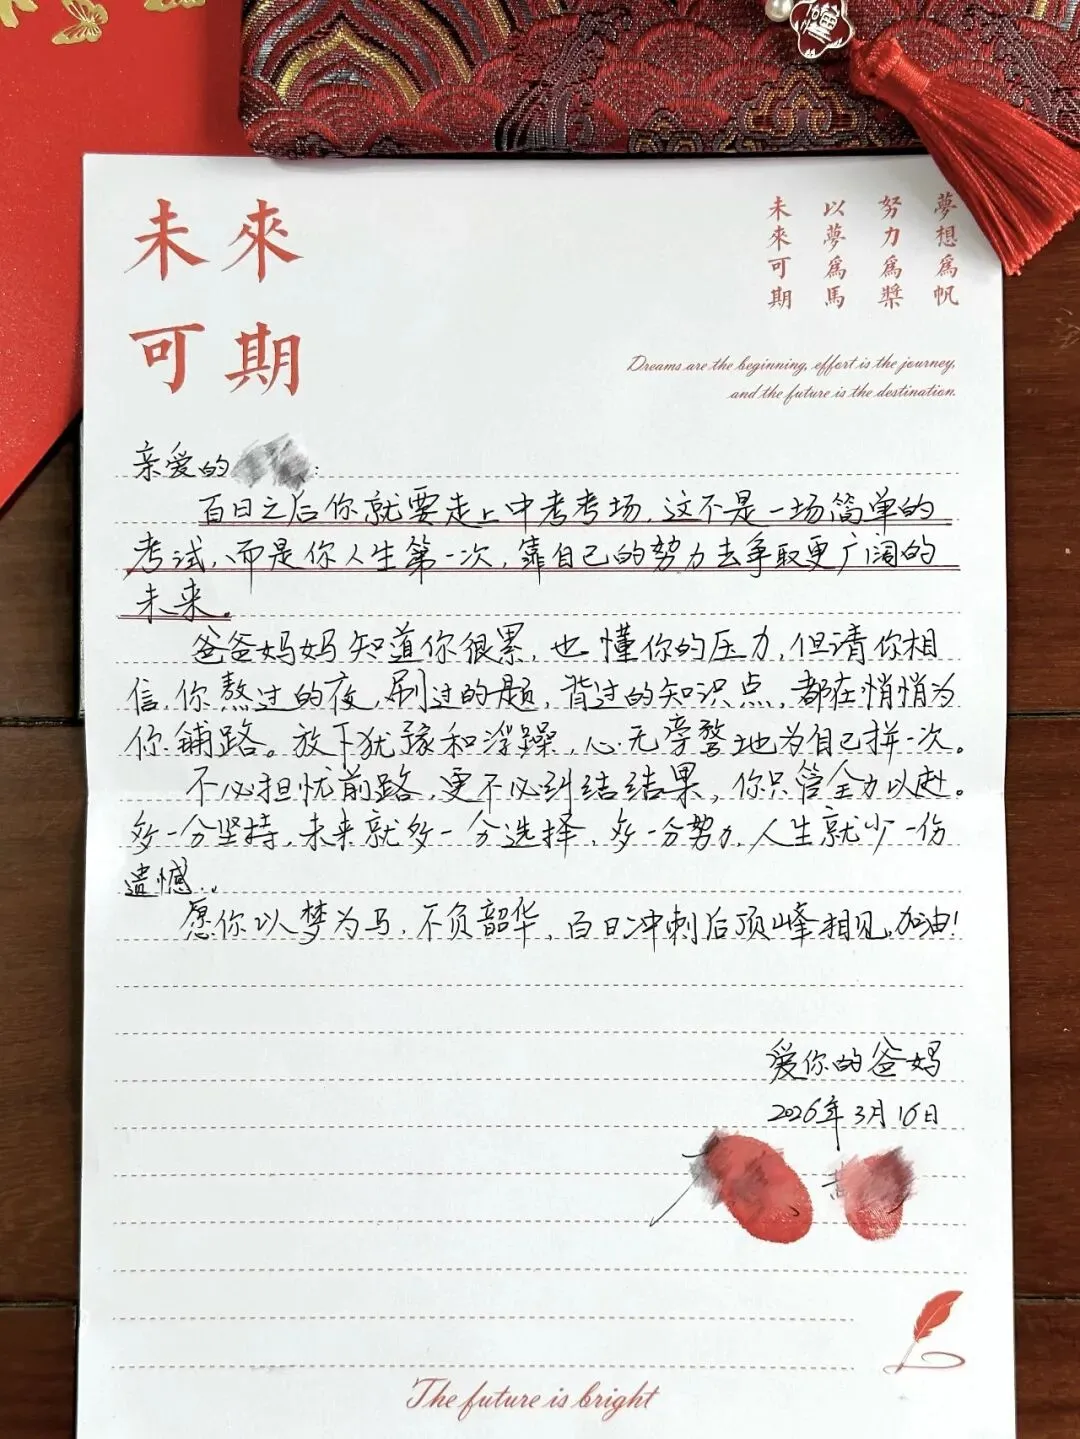 未來
可期
夢想為帆
努力為槳
以夢為馬
未來可期
Dreams are the beginning, effort is the journey,
and the future is the destination.
亲爱的 :
百日之后你就要走上中考考场,这不是一场简单的
考试,而是你人生第一次,靠自己的努力去争取更广阔的
未来。
爸爸妈妈知道你很累,也懂你的压力,但请你相
信,你熬过的夜,刷过的题,背过的知识点,都在悄悄为
你铺路。放下犹豫和浮躁,心无旁骛地为自己拼一次。
不必担忧前路,更不必纠结结果,你只管全力以赴。
多一分坚持,未来就多一分选择,多一分努力,人生就少一份
遗憾。
愿你以梦为马,不负韶华,百日冲刺后顶峰相见,加油!
爱你的爸妈
2026年3月16日
The future is bright